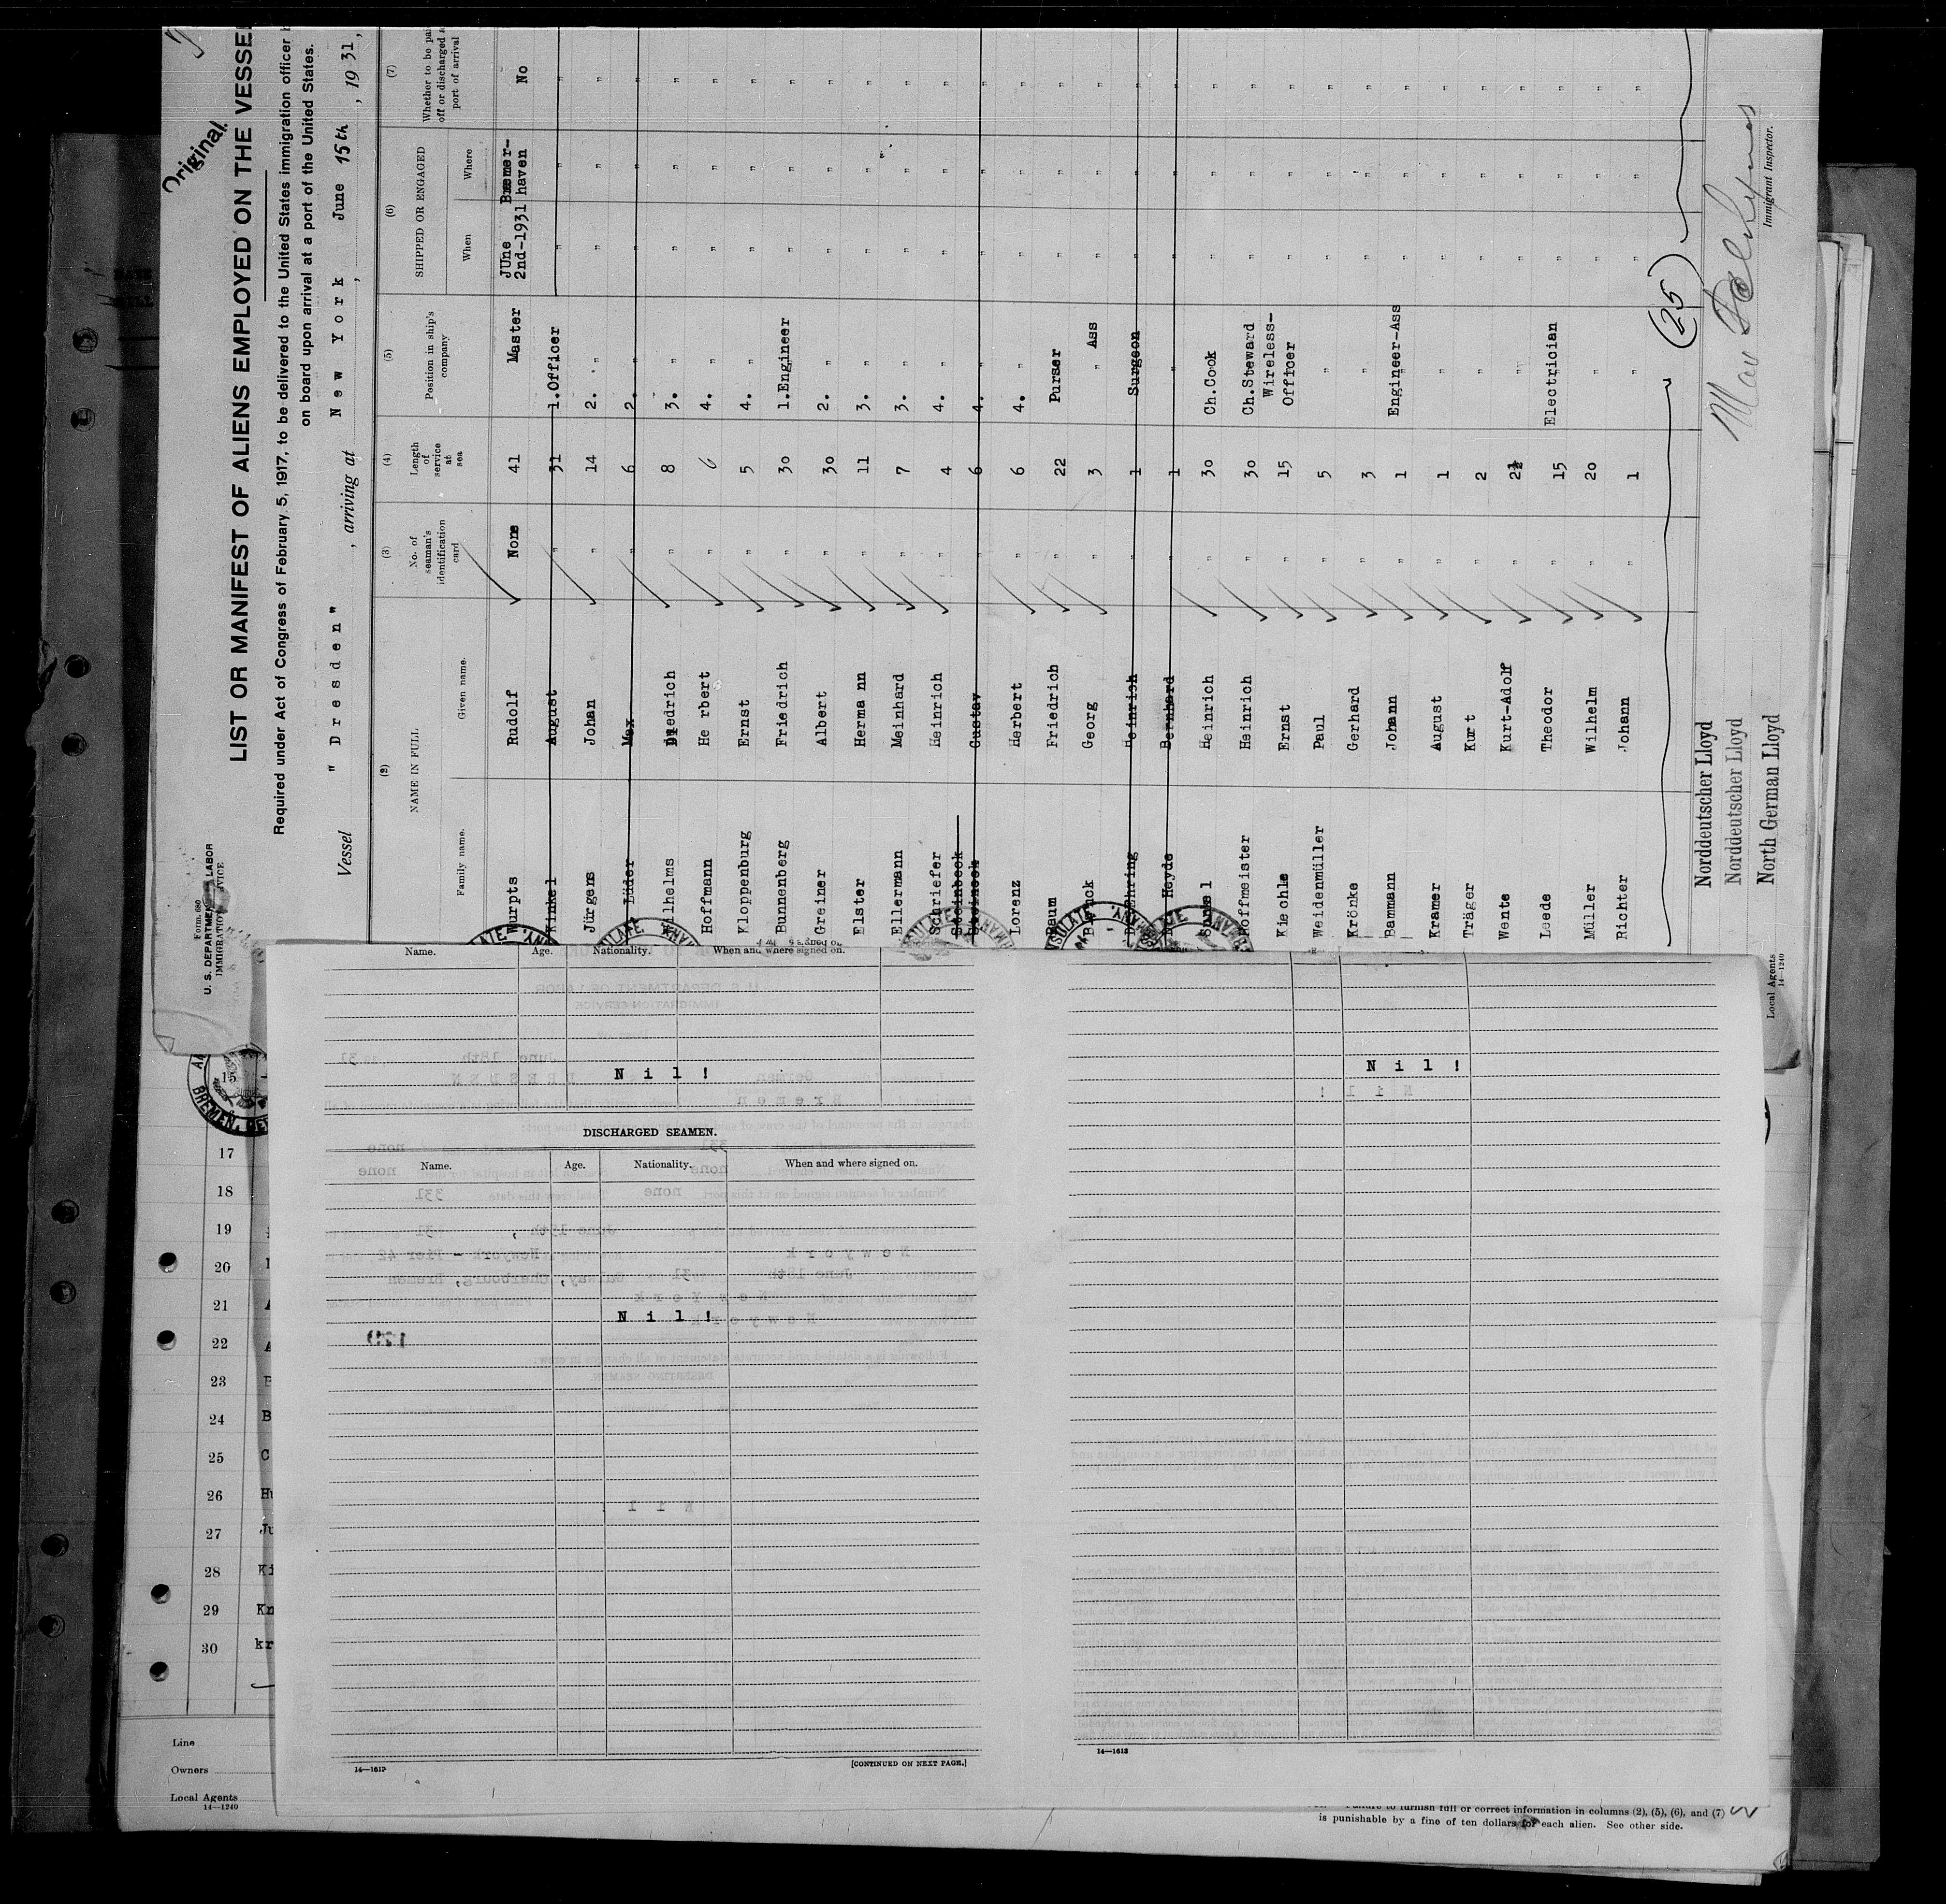 Original.
Form 680
U. S. DEPARTMENT LABOR
IMMIGRATION
LIST OR MANIFEST OF ALIENS EMPLOYED ON THE VESSEL
Required under Act of Congress of February 5, 1917, to be delivered to the United States immigration officer
on board upon arrival at a port of the United States.
Vessel " D r e s d e n " , arriving at N e w Y o r k , June 15th , 19 31,
(2) (3) (4) (5) (6) (7)
NAME IN FULL No. of seaman's identification card Length of service at sea Position in ship's company SHIPPED OR ENGAGED Whether to be paid off or discharged at port of arrival
Family name. Given name. When Where
Wurpts Rudolf None 41 Master JUne 2nd-1931 Bremer-haven No
Kinkel August " 31 1.Officer " " "
Jürgens Johan " 14 2. " " " "
Lüder Max " 6 2. " " " "
Wilhelms Diedrich " 8 3. " " " "
Hoffmann He rbert " 6 4. " " " "
Kloppenburg Ernst " 5 4. " " " "
Bunnenberg Friedrich " 30 1.Engineer " " "
Greiner Albert " 30 2. " " " "
Elster Herma nn " 11 3. " " " "
Ellermann Meinhard " 7 3. " " " "
Schriefer Heinrich " 4 4. " " " "
Steinbeck
Steineck Gustav " 6 4. " " " "
Lorenz Herbert " 6 4. " " " "
Baum Friedrich " 22 Purser " " "
Georg " 3 " Ass " " "
Heinrich " 1 Surgeon " " "
Heyde Bernhard " 1 " " " "
Heinrich " 30 Ch.Cook " " "
Hoffmeister Heinrich " 30 Ch.Steward " " "
Kiechle Ernst " 15 Wireless-Officer " " "
Weidenmüller Paul " 5 " " " "
Krönke Gerhard " 3 " " " "
Bammann Johann " 1 Engineer-Ass " " "
Kramer August " 1 " " " "
Träger Kurt " 2 " " " "
Wente Kurt-Adolf " 2½ " " " "
Leede Theodor " 15 Electrician " " "
Müller Wilhelm " 20 " " " "
Richter Johann " 1 " " " "
(25)
Norddeutscher Lloyd
Norddeutscher Lloyd
North German Lloyd
Local Agents
14—1240
Immigrant Inspector.
Name. Age. Nationality. When and where signed on.
N i l !
DISCHARGED SEAMEN.
Name. Age. Nationality. When and where signed on.
N i l !
14—1612
[CONTINUED ON NEXT PAGE.]
N i l !
14—1612
15
BREMEN,
17
18
19
20
21
22
23
24 B
25 C
26 Hu
27 Ju
28 Ki
29 Kn
30 kr
Line
Owners
Local Agents
14—1240
to furnish full or correct information in columns (2), (5), (6), and (7)
is punishable by a fine of ten dollars for each alien. See other side.